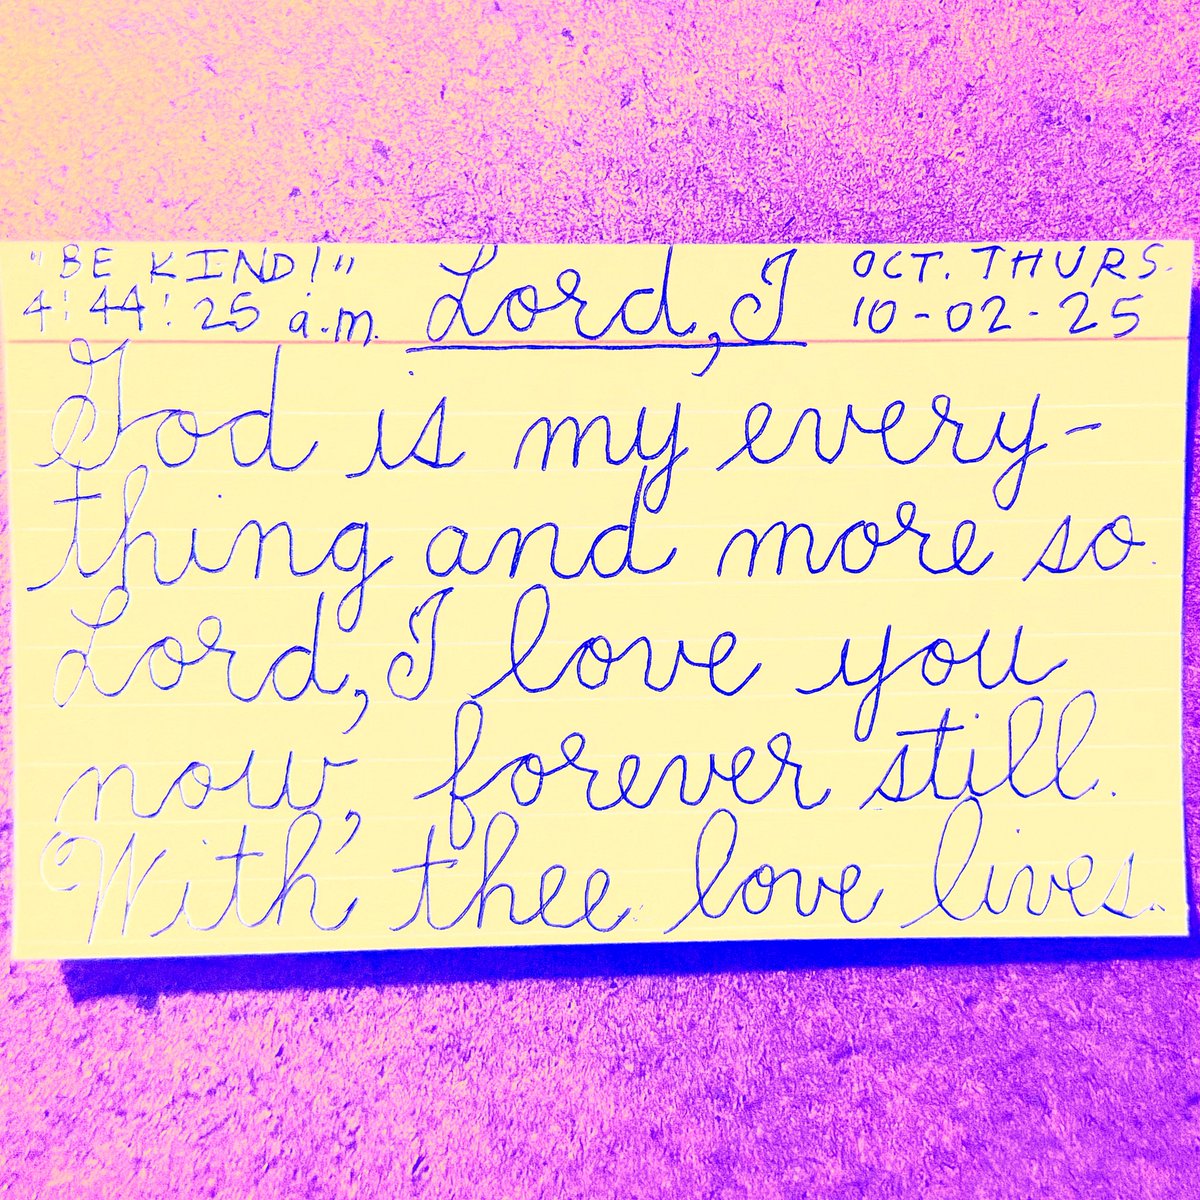 "BE KIND!" Lord, I OCT. THURS.
4:44:25 a.m. 10-02-25
God is my every-
thing and more so.
Lord, I love you
now, forever still.
With thee love lives.